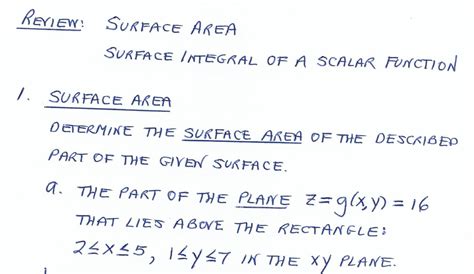 REVIEW: SURFACE AREA
SURFACE INTEGRAL OF A SCALAR FUNCTION
1. SURFACE AREA
DETERMINE THE SURFACE AREA OF THE DESCRIBED
PART OF THE GIVEN SURFACE.
a. THE PART OF THE PLANE z=g(x,y)=16
THAT LIES ABOVE THE RECTANGLE:
2≤x≤5, 1≤y≤7 IN THE XY PLANE.